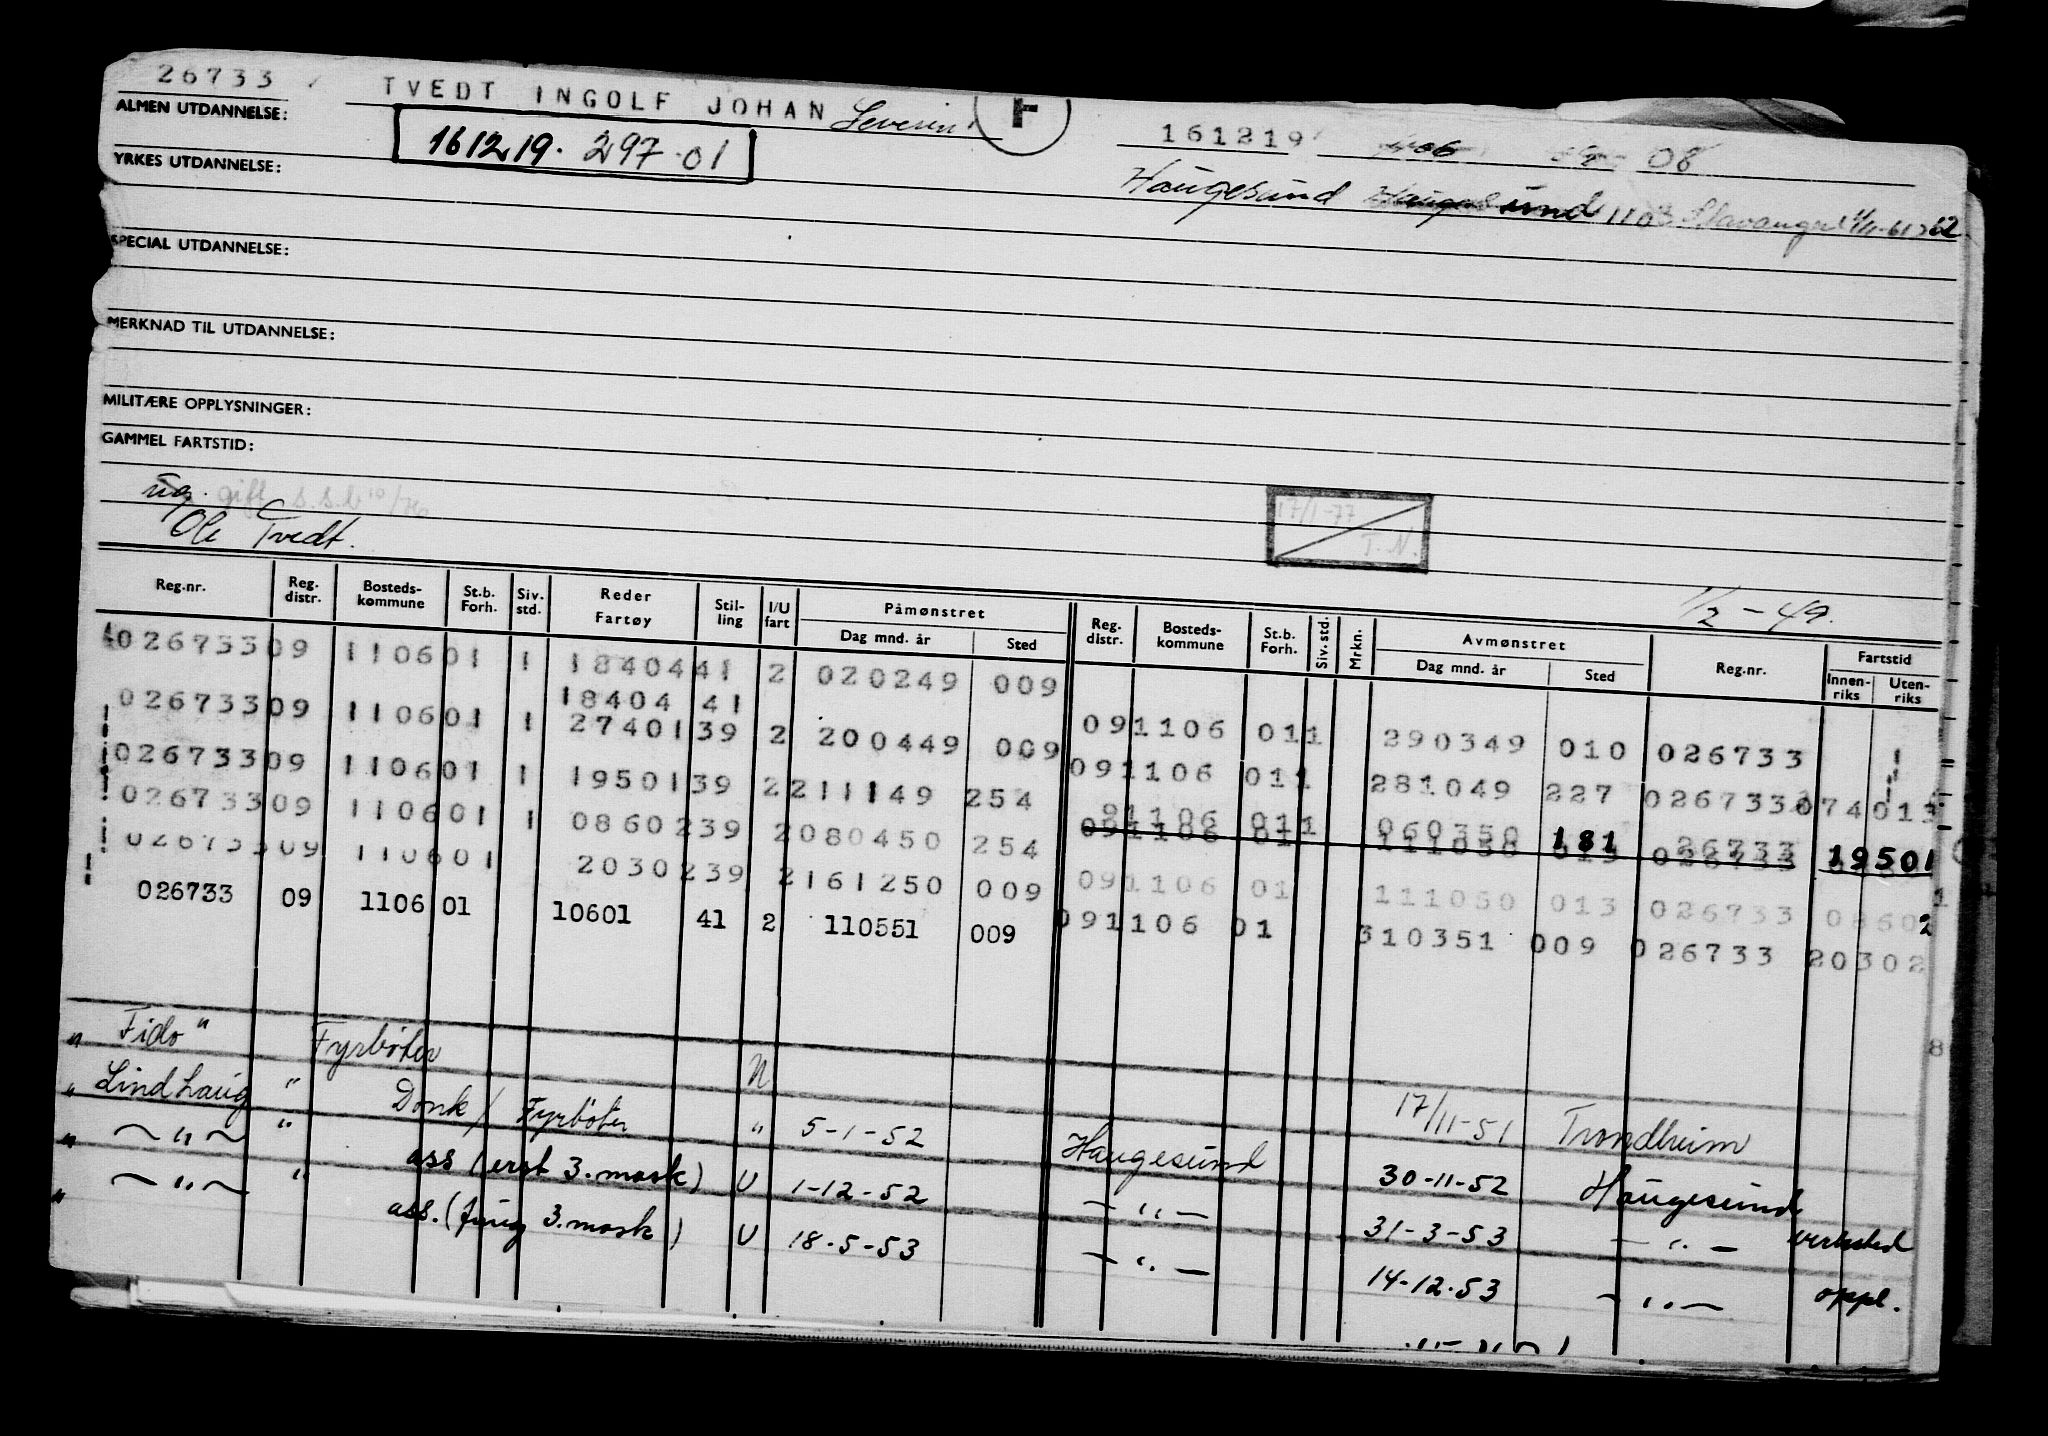 26733 TVEDT INGOLF JOHAN Severin F 161219 08
ALMEN UTDANNELSE:
161219. 297.01
YRKES UTDANNELSE:
Haugesund Haugesund 1103 Stavanger
SPECIAL UTDANNELSE:
MERKNAD TIL UTDANNELSE:
MILITÆRE OPPLYSNINGER:
GAMMEL FARTSTID:
ug. gift
17/1-77
T.N.
Ole Tvedt.
1/2-49.
Reg.nr. Reg. distr. Bosteds-kommune St.b. Forh. Siv. std. Reder Fartøy Stil-ling I/U fart Påmønstret Dag mnd. år Sted Reg. distr. Bosteds-kommune St.b. Forh. Siv. std. Mrkn. Avmønstret Dag mnd. år Sted Reg.nr. Fartstid Innen-riks Uten-riks
026733 09 1106 01 1 18404 41 2 020249 009
18404 41
026733 09 1106 01 1 27401 39 2 200449 009 09 1106 01 1 290349 010 026733
026733 09 1106 01 1 19501 39 2 211149 254 09 1106 01 1 281049 227 026733 074013
026733 09 1106 01 1 08602 39 2 080450 254 91106 01 1 060350 181 26733 19501
026733 09 1106 01 20302 39 2 161250 009 09 1106 01 111050 013 026733 08602
026733 09 1106 01 10601 41 2 110551 009 09 1106 01 310351 009 026733 20302
8
" Fido " Fyrbøter N 17/11-51 Trondheim
" Lindhaug " Donk / Fyrbøter " 5-1-52 Haugesund 30-11-52 Haugesund
" — " — " ass (erst 3. mask) U 1-12-52 — " — 31-3-53 — " — verksted
" — " — " ass. (fung 3. mask) U 18-5-53 — " — 14-12-53 — " — oppl.